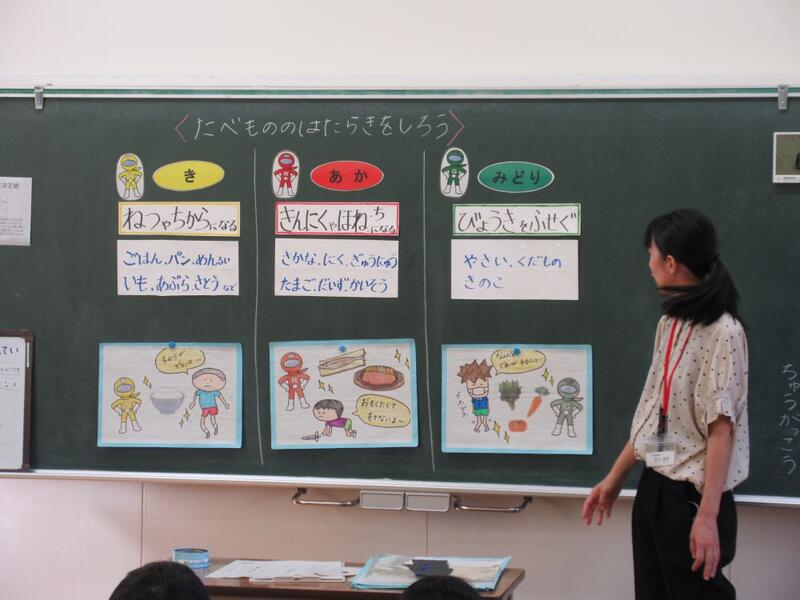 〈たべもののはたらきをしろう〉
き
ねつやちからになる
ごはん、パン、めんるい
いも、あぶら、さとうなど
ちからが
でないよ〜
あか
きんにくやほね、ち
になる
さかな、にく、ぎゅうにゅう
たまご、だいず、かいそう
おもたくて
もてないよ〜
みどり
びょうきをふせぐ
やさい、くだもの
きのこ
ちゅうがっこう